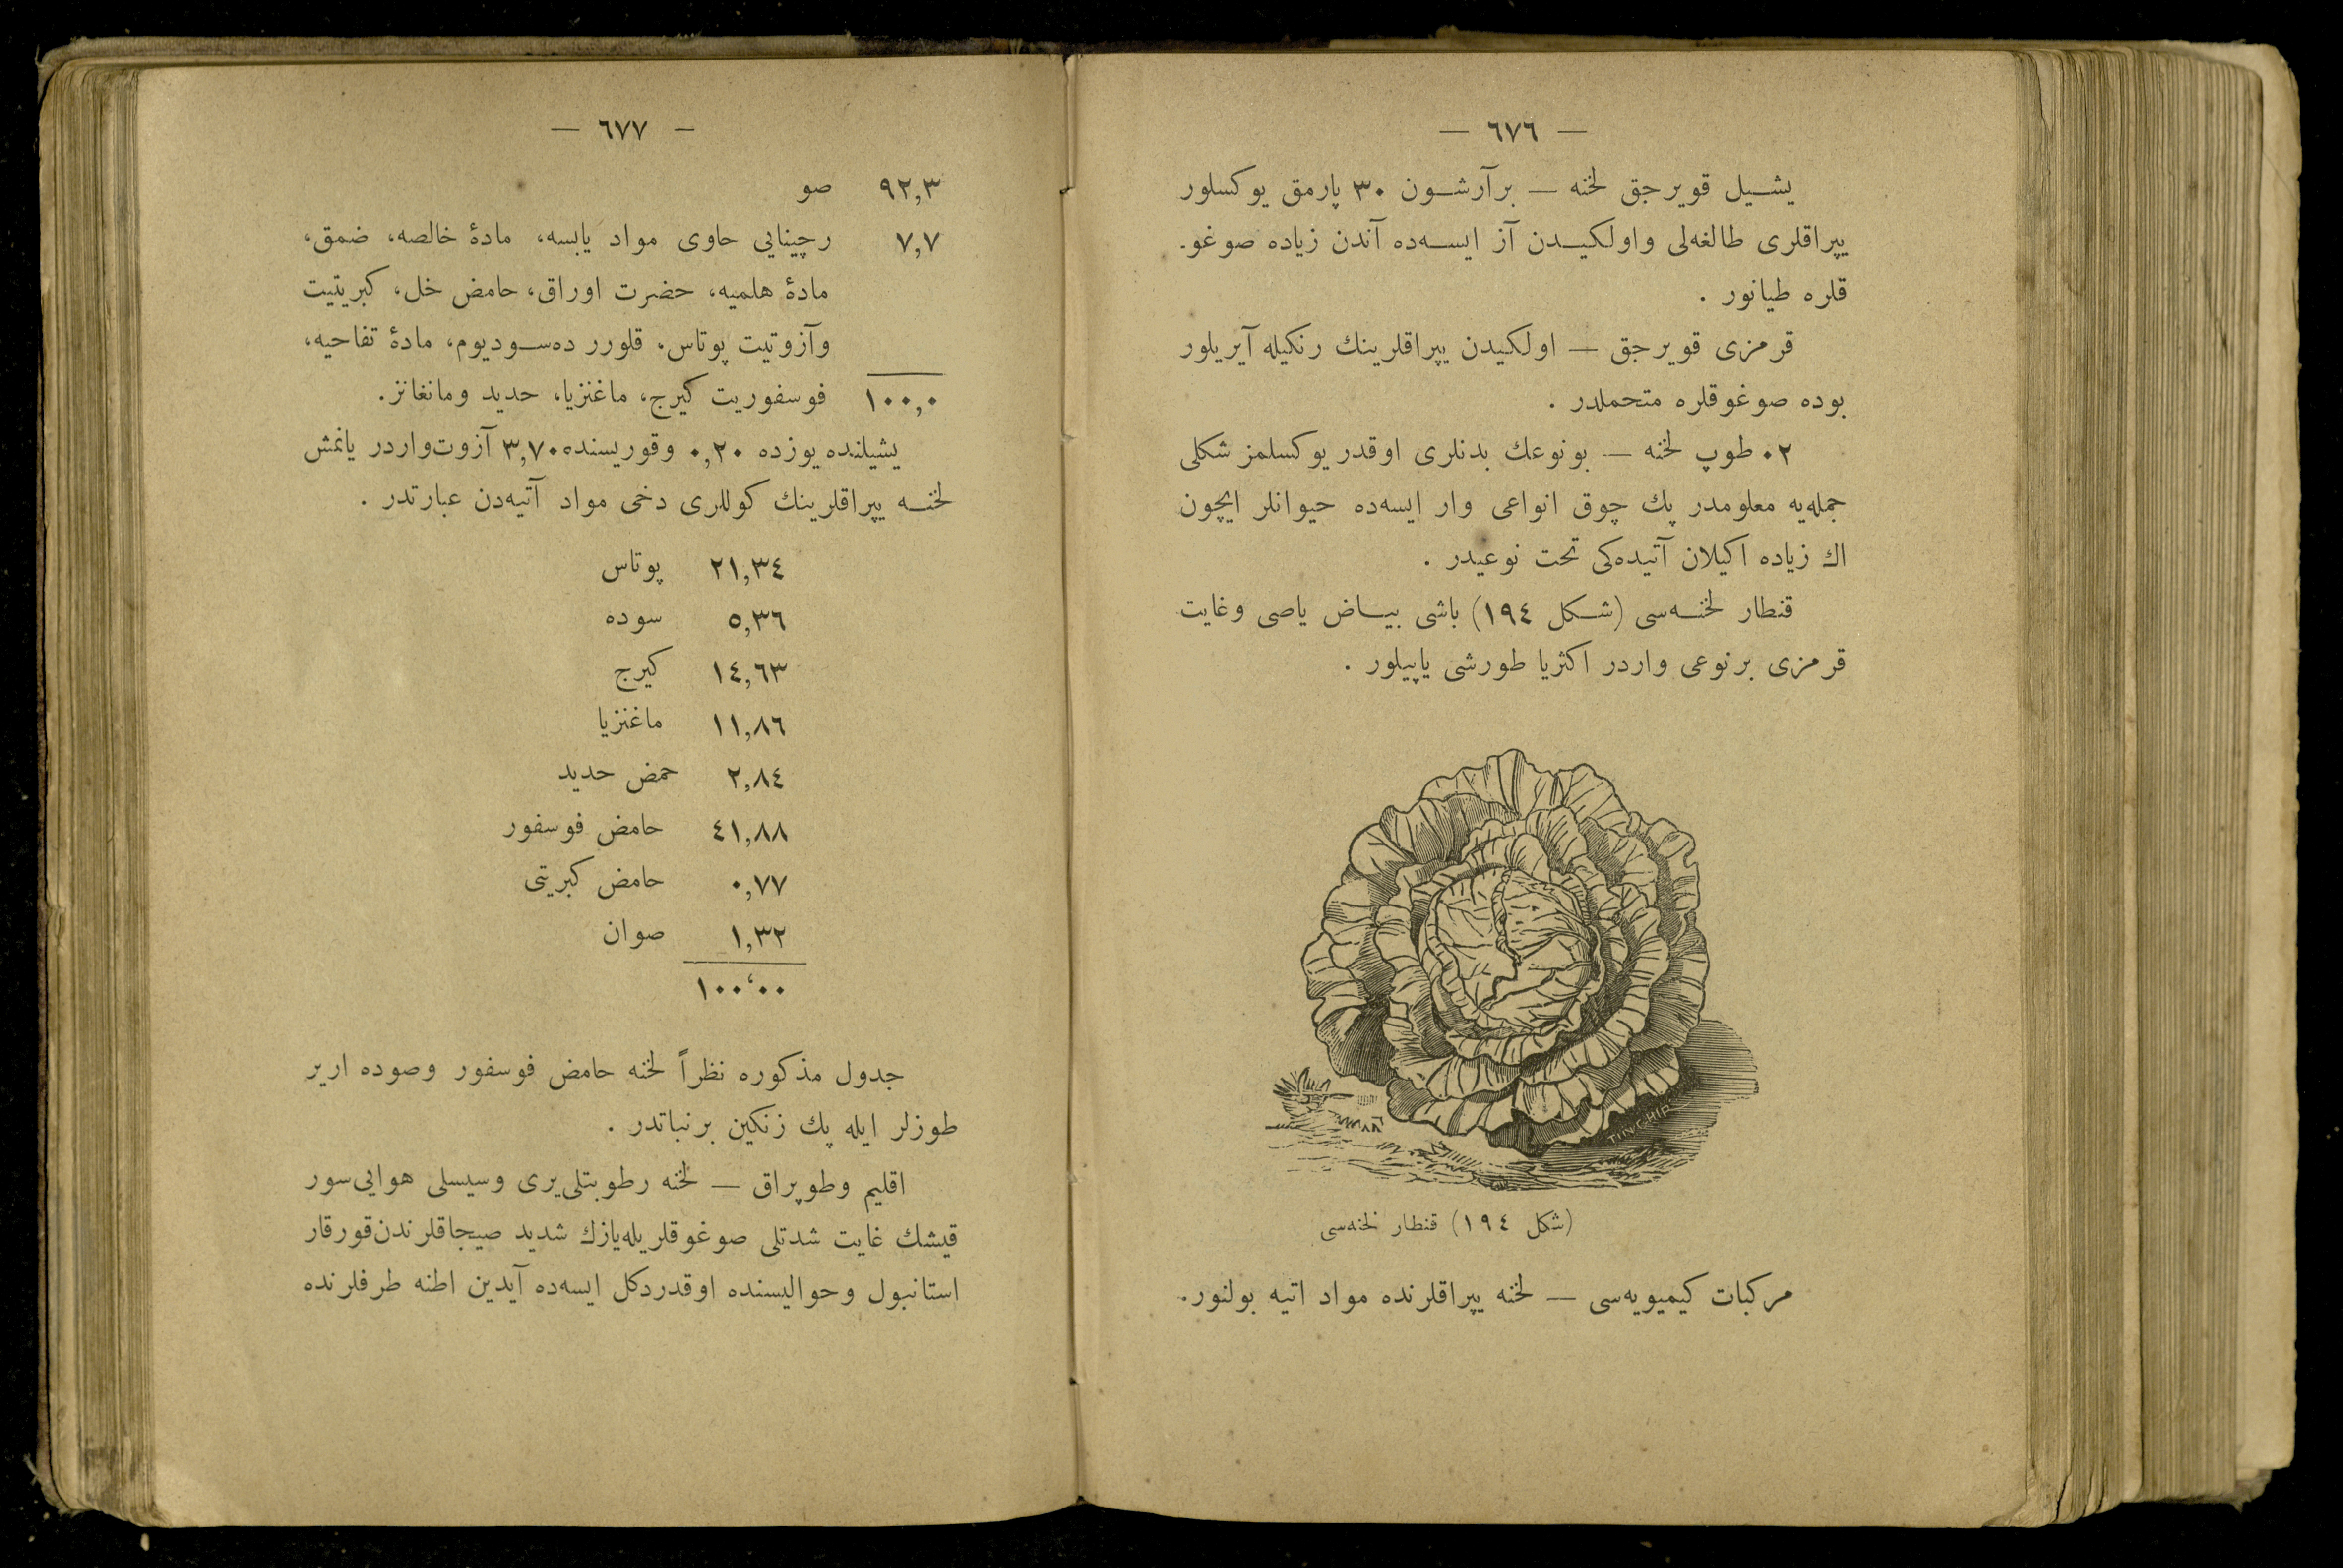 — ٦٧٦ —
یشیل قویرجق لخنه — برآرشون ٣٠ پارمق یوکسلور
یپراقلری طالغه‌لی واولکیدن آز ایسه‌ده آندن زیاده صوغو-
قلره طیانور .
قرمزی قویرجق — اولکیدن یپراقلرینك رنکیله آیریلور
بوده صوغوقلره متحملدر .
٢٠ طوپ لخنه — بونوعك بدنلری اوقدر یوکسلمز شکلی
جمله‌یه معلومدر پك چوق انواعی وار ایسه‌ده حیوانلر ایچون
اك زیاده اکیلان آتیده‌کی تحت نوعیدر .
قنطار لخنه‌سی (شکل ١٩٤) باشی بیاض یاصی وغایت
قرمزی برنوعی واردر اکثریا طورشی یاپیلور .
TINGHIR
(شکل ١٩٤) قنطار لخنه‌سی
مرکبات کیمیویه‌سی — لخنه یپراقلرنده مواد اتیه بولنور.
— ٦٧٧ —
٩٢,٣ صو
٧,٧ رچینایی حاوی مواد یابسه، مادهٔ خالصه، ضمق،
مادهٔ هلمیه، حضرت اوراق، حامض خل، کبریتیت
وآزوتیت پوتاس، قلورر ده‌سودیوم، مادهٔ تفاحیه،
١٠٠,٠ فوسفوریت کیرج، ماغنزیا، حدید ومانغانز.
یشیلنده یوزده ٠,٢٠ وقوریسنده ٣,٧٠ آزوت‌واردر یانمش
لخنه یپراقلرینك کوللری دخی مواد آتیه‌دن عبارتدر .
٢١,٣٤ پوتاس
٥,٣٦ سوده
١٤,٦٣ کیرج
١١,٨٦ ماغنزیا
٢,٨٤ حمض حدید
٤١,٨٨ حامض فوسفور
٠,٧٧ حامض کبریتی
١,٣٢ صوان
١٠٠،٠٠
جدول مذکوره نظراً لخنه حامض فوسفور وصوده اریر
طوزلر ایله پك زنکین برنباتدر .
اقلیم وطوپراق — لخنه رطوبتلی‌یری وسیسلی هوایی‌سور
قیشك غایت شدتلی صوغوقلریله‌یازك شدید صیجاقلرندن‌قورقار
استانبول وحوالیسنده اوقدردکل ایسه‌ده آیدین اطنه طرفلرنده